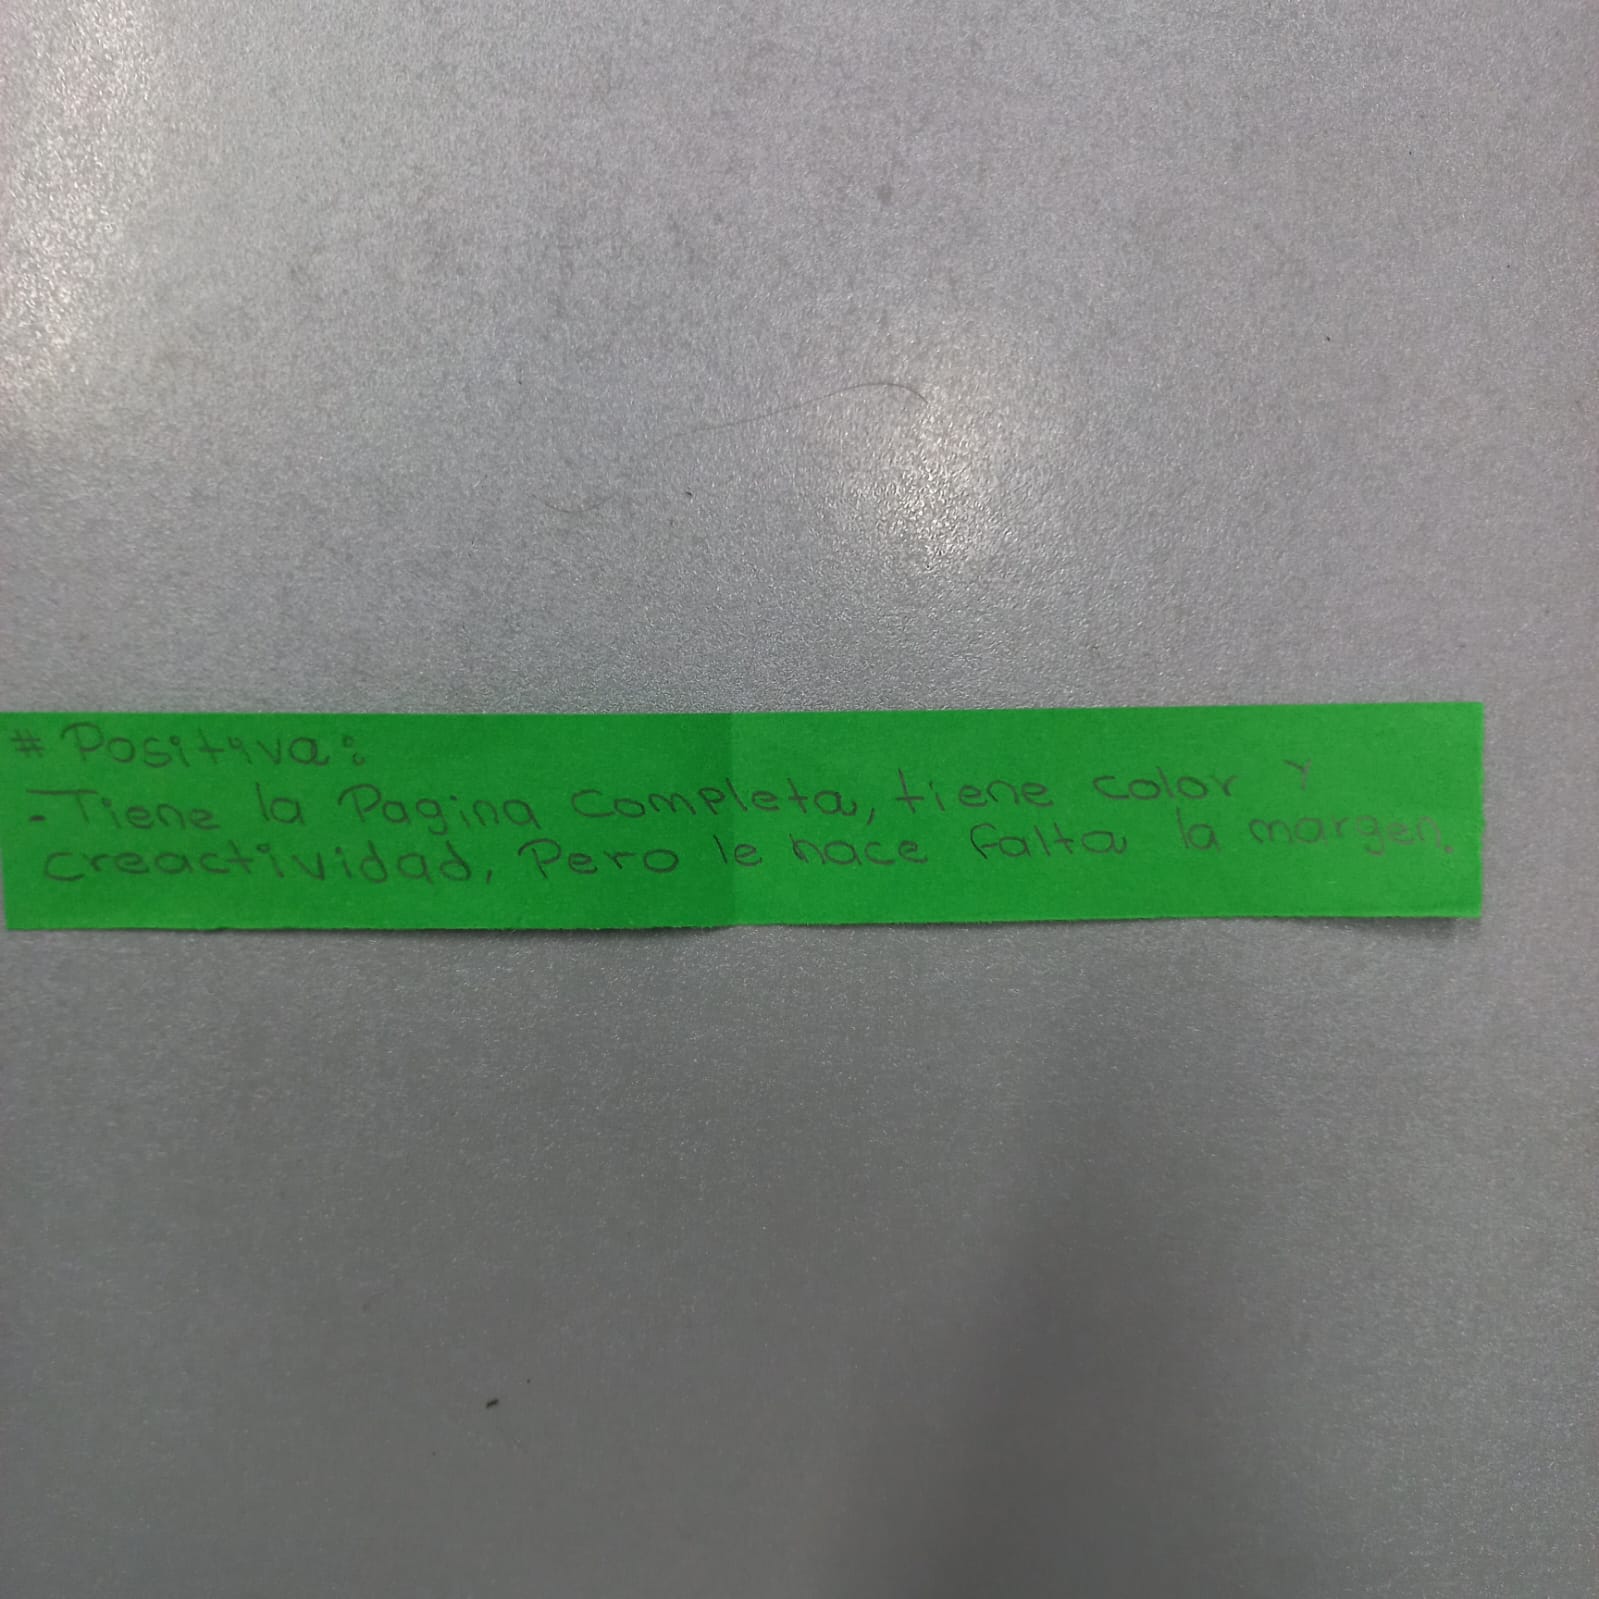 # Positiva:
- Tiene la Pagina completa, tiene color y
creactividad, Pero le hace falta la margen.